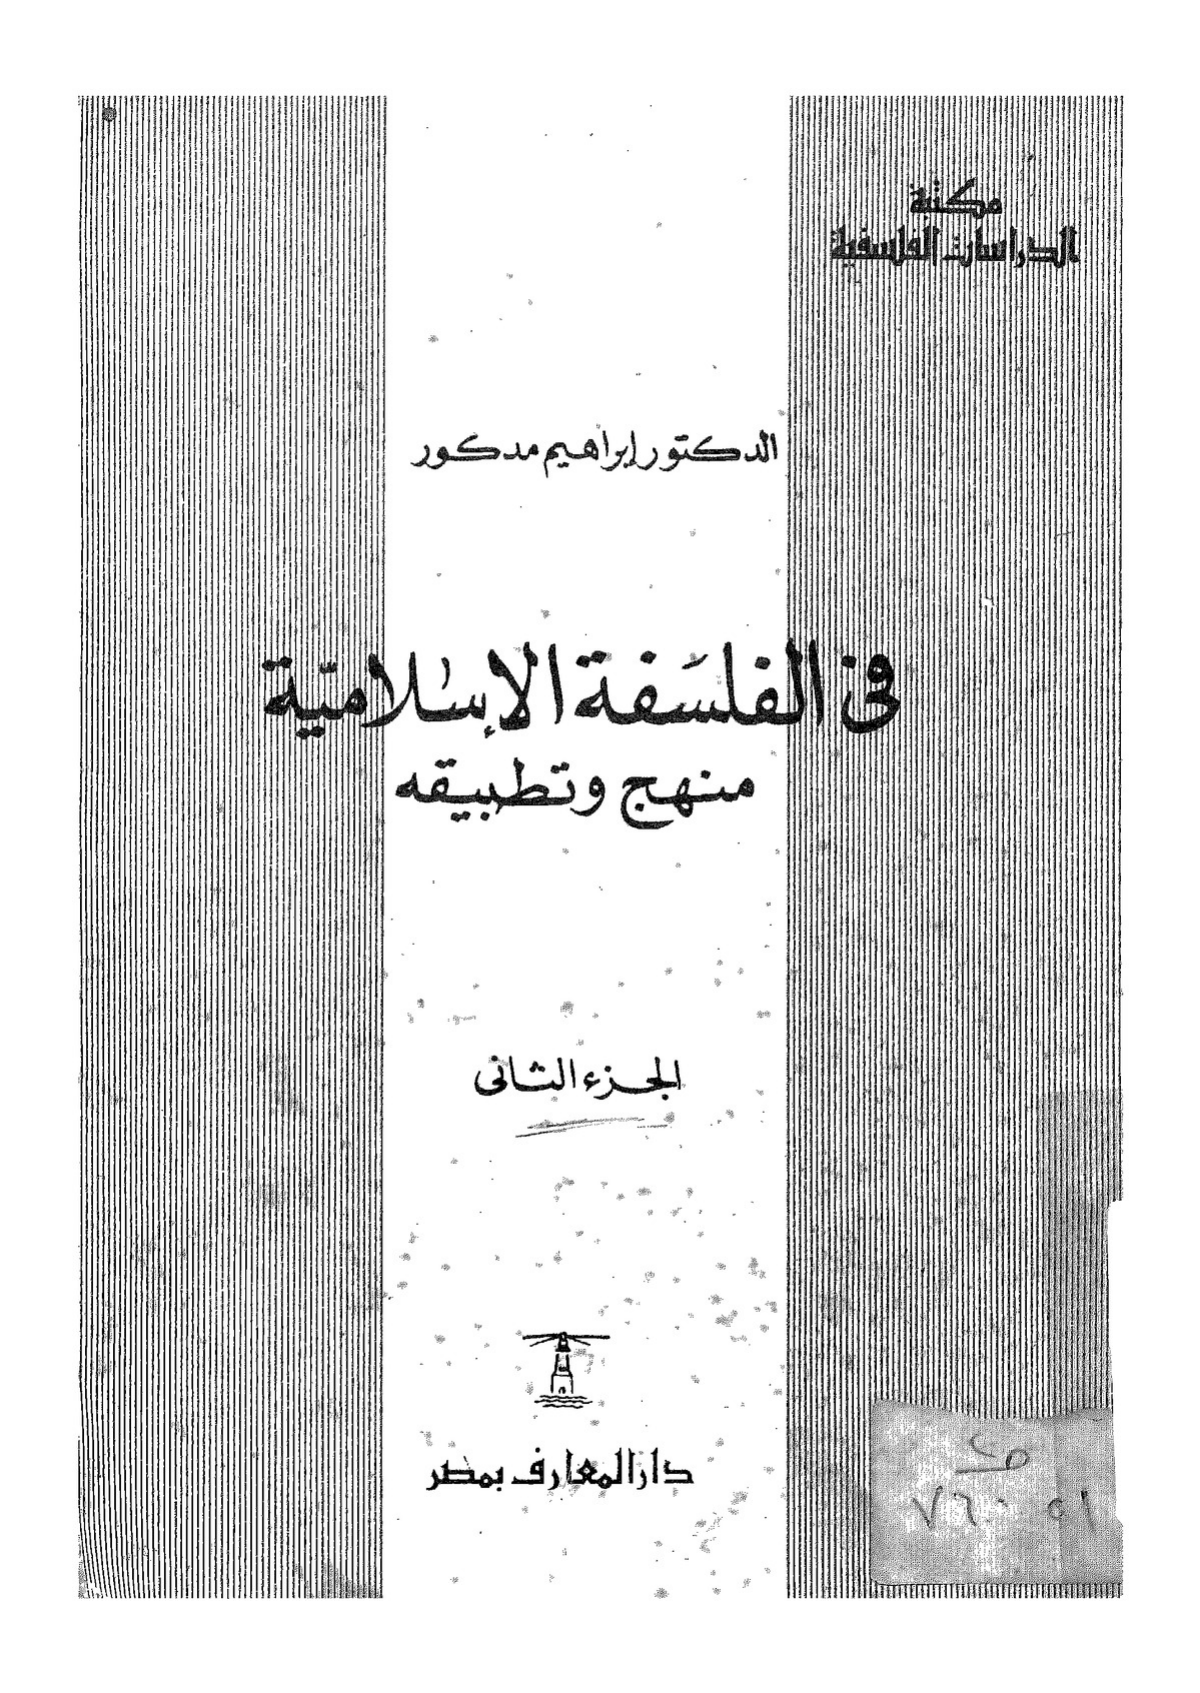 مكتبة
الدراسات الفلسفية
الدكتور إبراهيم مدكور
فى الفلسَفة الإسلاميّة
منهج وتطبيقه
الجزء الثانى
دار المعارف بمصر